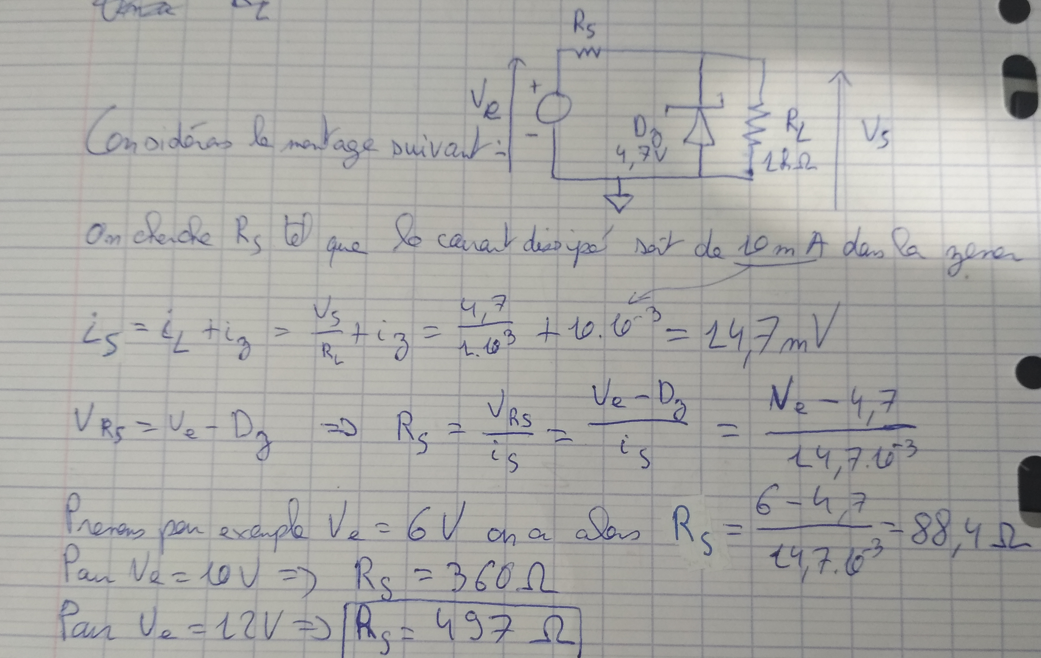 R_S
V_e
+
-
Considérons le montage suivant :
D_z
4,7V
R_L
1kΩ
V_s
On cherche R_S tel que le courant dissipé soit de 10 mA dans la zener
i_S = i_L + i_z = V_S/R_L + i_z = 4,7/1.10^3 + 10.10^-3 = 14,7 mV
V_RS = V_e - D_z => R_S = V_RS/i_S = V_e - D_z/i_S = V_e - 4,7/14,7.10^-3
Prenons par exemple V_e = 6V on a alors R_S = 6 - 4,7/14,7.10^-3 = 88,4 Ω
Pour V_e = 10V => R_S = 360 Ω
Pour V_e = 12V => R_S = 497 Ω